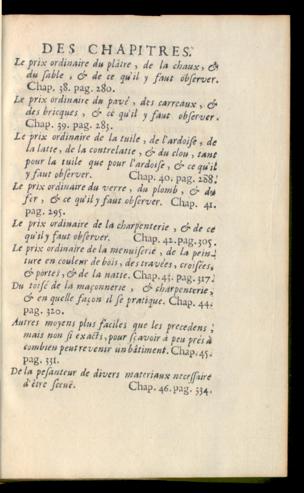 DES CHAPITRES.
Le prix ordinaire du plâtre, de la chaux, &
du sable, & de ce qu'il y faut observer.
Chap. 38. pag. 280.
Le prix ordinaire du pavé, des carreaux, &
des bricques, & cé qu'il y faut observer.
Chap. 39. pag. 283.
Le prix ordinaire de la tuile, de l'ardoise, de
la latte, de la contrelatte, & du clou, tant
pour la tuile que pour l'ardoise, & ce qu'il
y faut observer. Chap. 40. pag. 288.
Le prix ordinaire du verre, du plomb, & du
fer, & ce qu'il y faut observer. Chap. 41.
pag. 295.
Le prix ordinaire de la charpenterie, & de ce
qu'il y faut observer. Chap. 42. pag. 305.
Le prix ordinaire de la menuiserie, de la pein-
ture en couleur de bois, des travées, croisées,
& portes, & de la natte. Chap. 43. pag. 317.
Du toisé de la maçonnerie, & charpenterie,
& en quelle façon il se pratique. Chap. 44.
pag. 320.
Autres moyens plus faciles que les precedens,
mais non si exacts, pour sçavoir à peu prés à
combien peut revenir un bâtiment. Chap. 45.
pag. 331.
De la pesanteur de divers materiaux necessaire
d'être sceuë. Chap. 46. pag. 334.